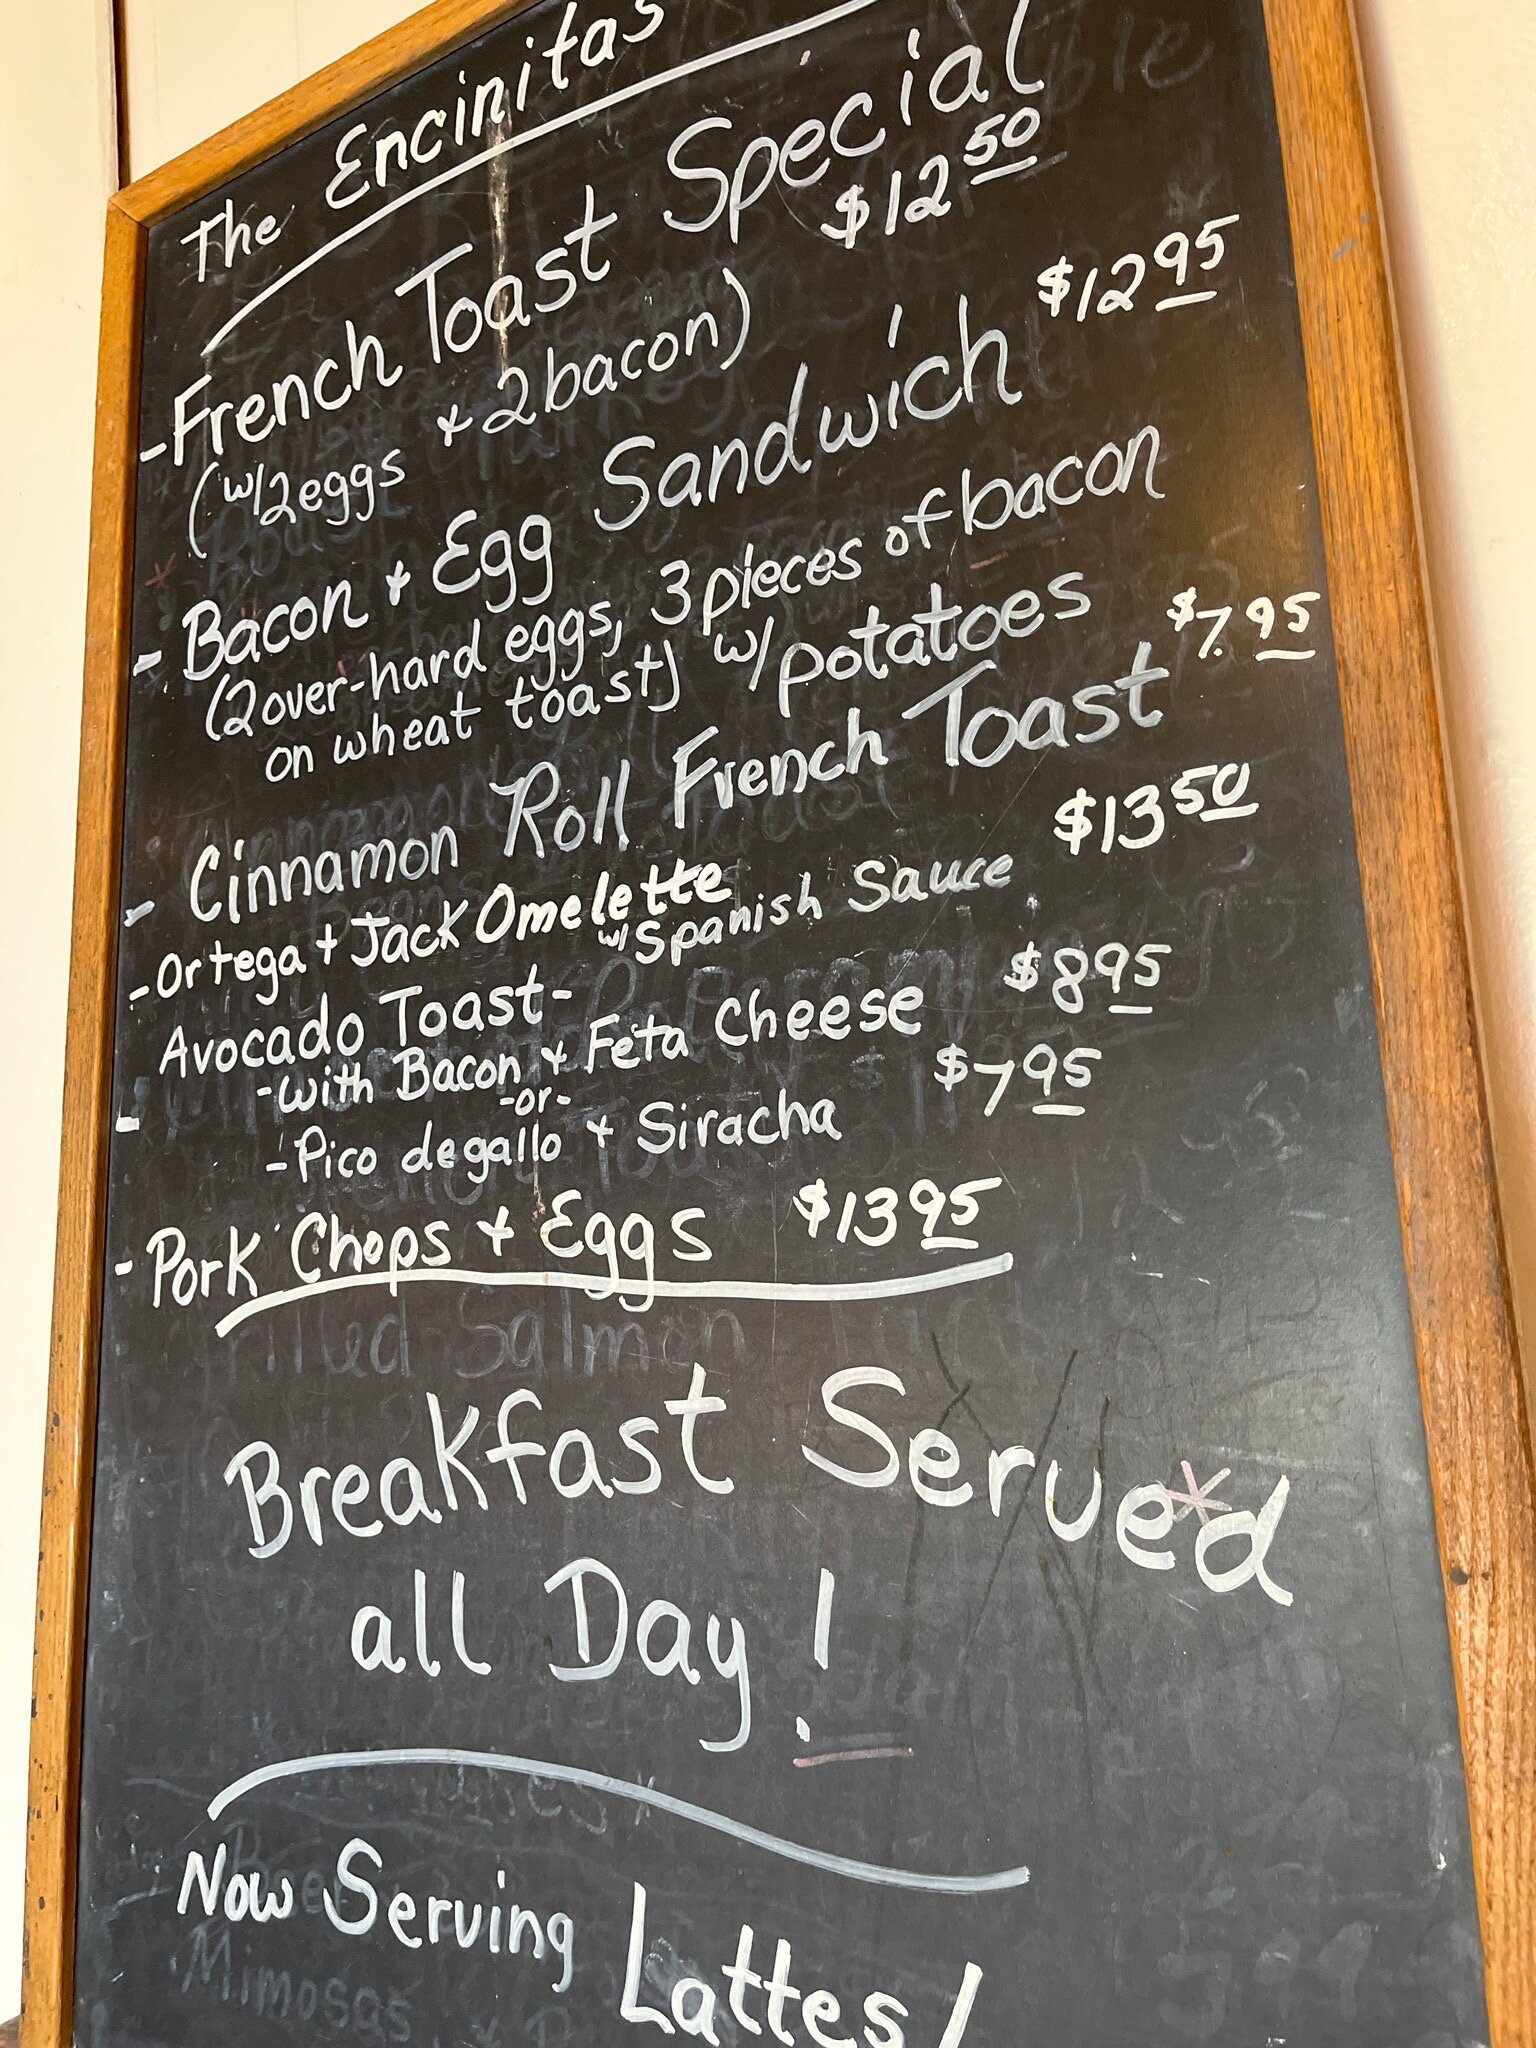 The Encinitas
- French Toast Special
$12 50
(w/2 eggs + 2 bacon)
- Bacon + Egg Sandwich $12 95
(2 over-hard eggs, 3 pieces of bacon
on wheat toast) w/ potatoes
- Cinnamon Roll French Toast $7.95
- Ortega + Jack Omelette $13 50
w/ Spanish Sauce
- Avocado Toast-
- with Bacon + Feta Cheese $8 95
-or-
- Pico degallo + Siracha $7 95
- Pork Chops + Eggs $13 95
Salmon
Breakfast Served
all Day!
Now Serving Lattes!
Mimosas